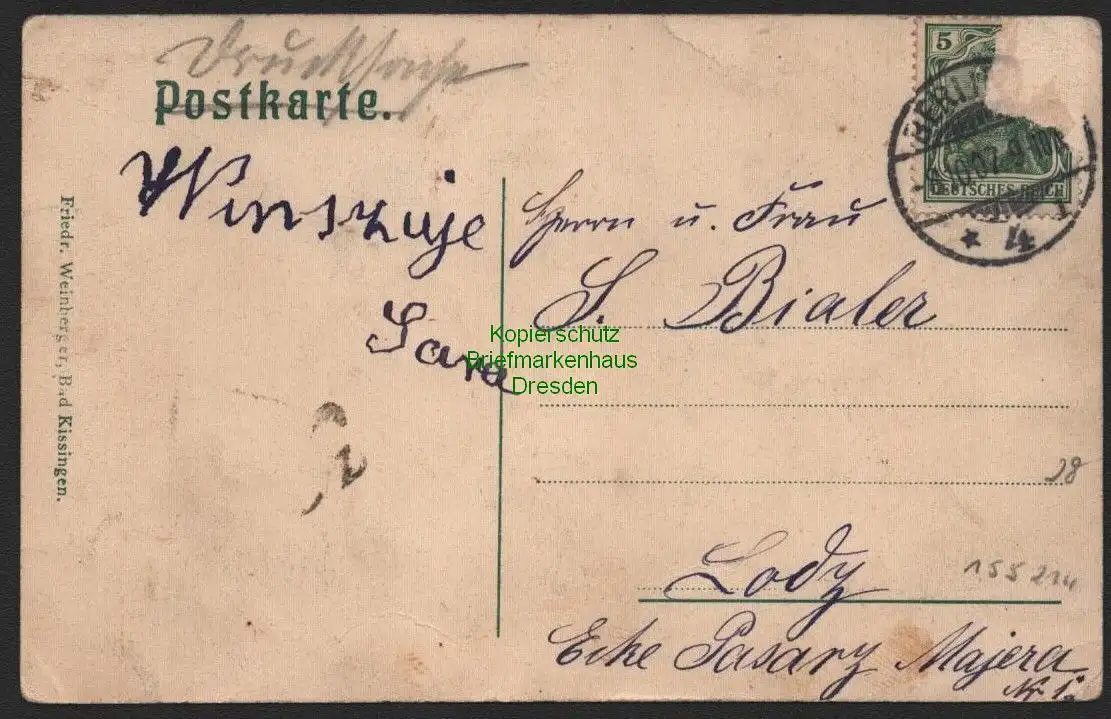 Drucksache
Postkarte.
Winszuje
Sara
Friedr. Weinberger, Bad Kissingen.
5
DEUTSCHES REICH
BERLIN
10 07 9-10
Herrn u. Frau
S. Bialer
Kopierschutz
Briefmarkenhaus
Dresden
2
28
Lody
155214
Ecke Pasarz Majera
Nr 1.